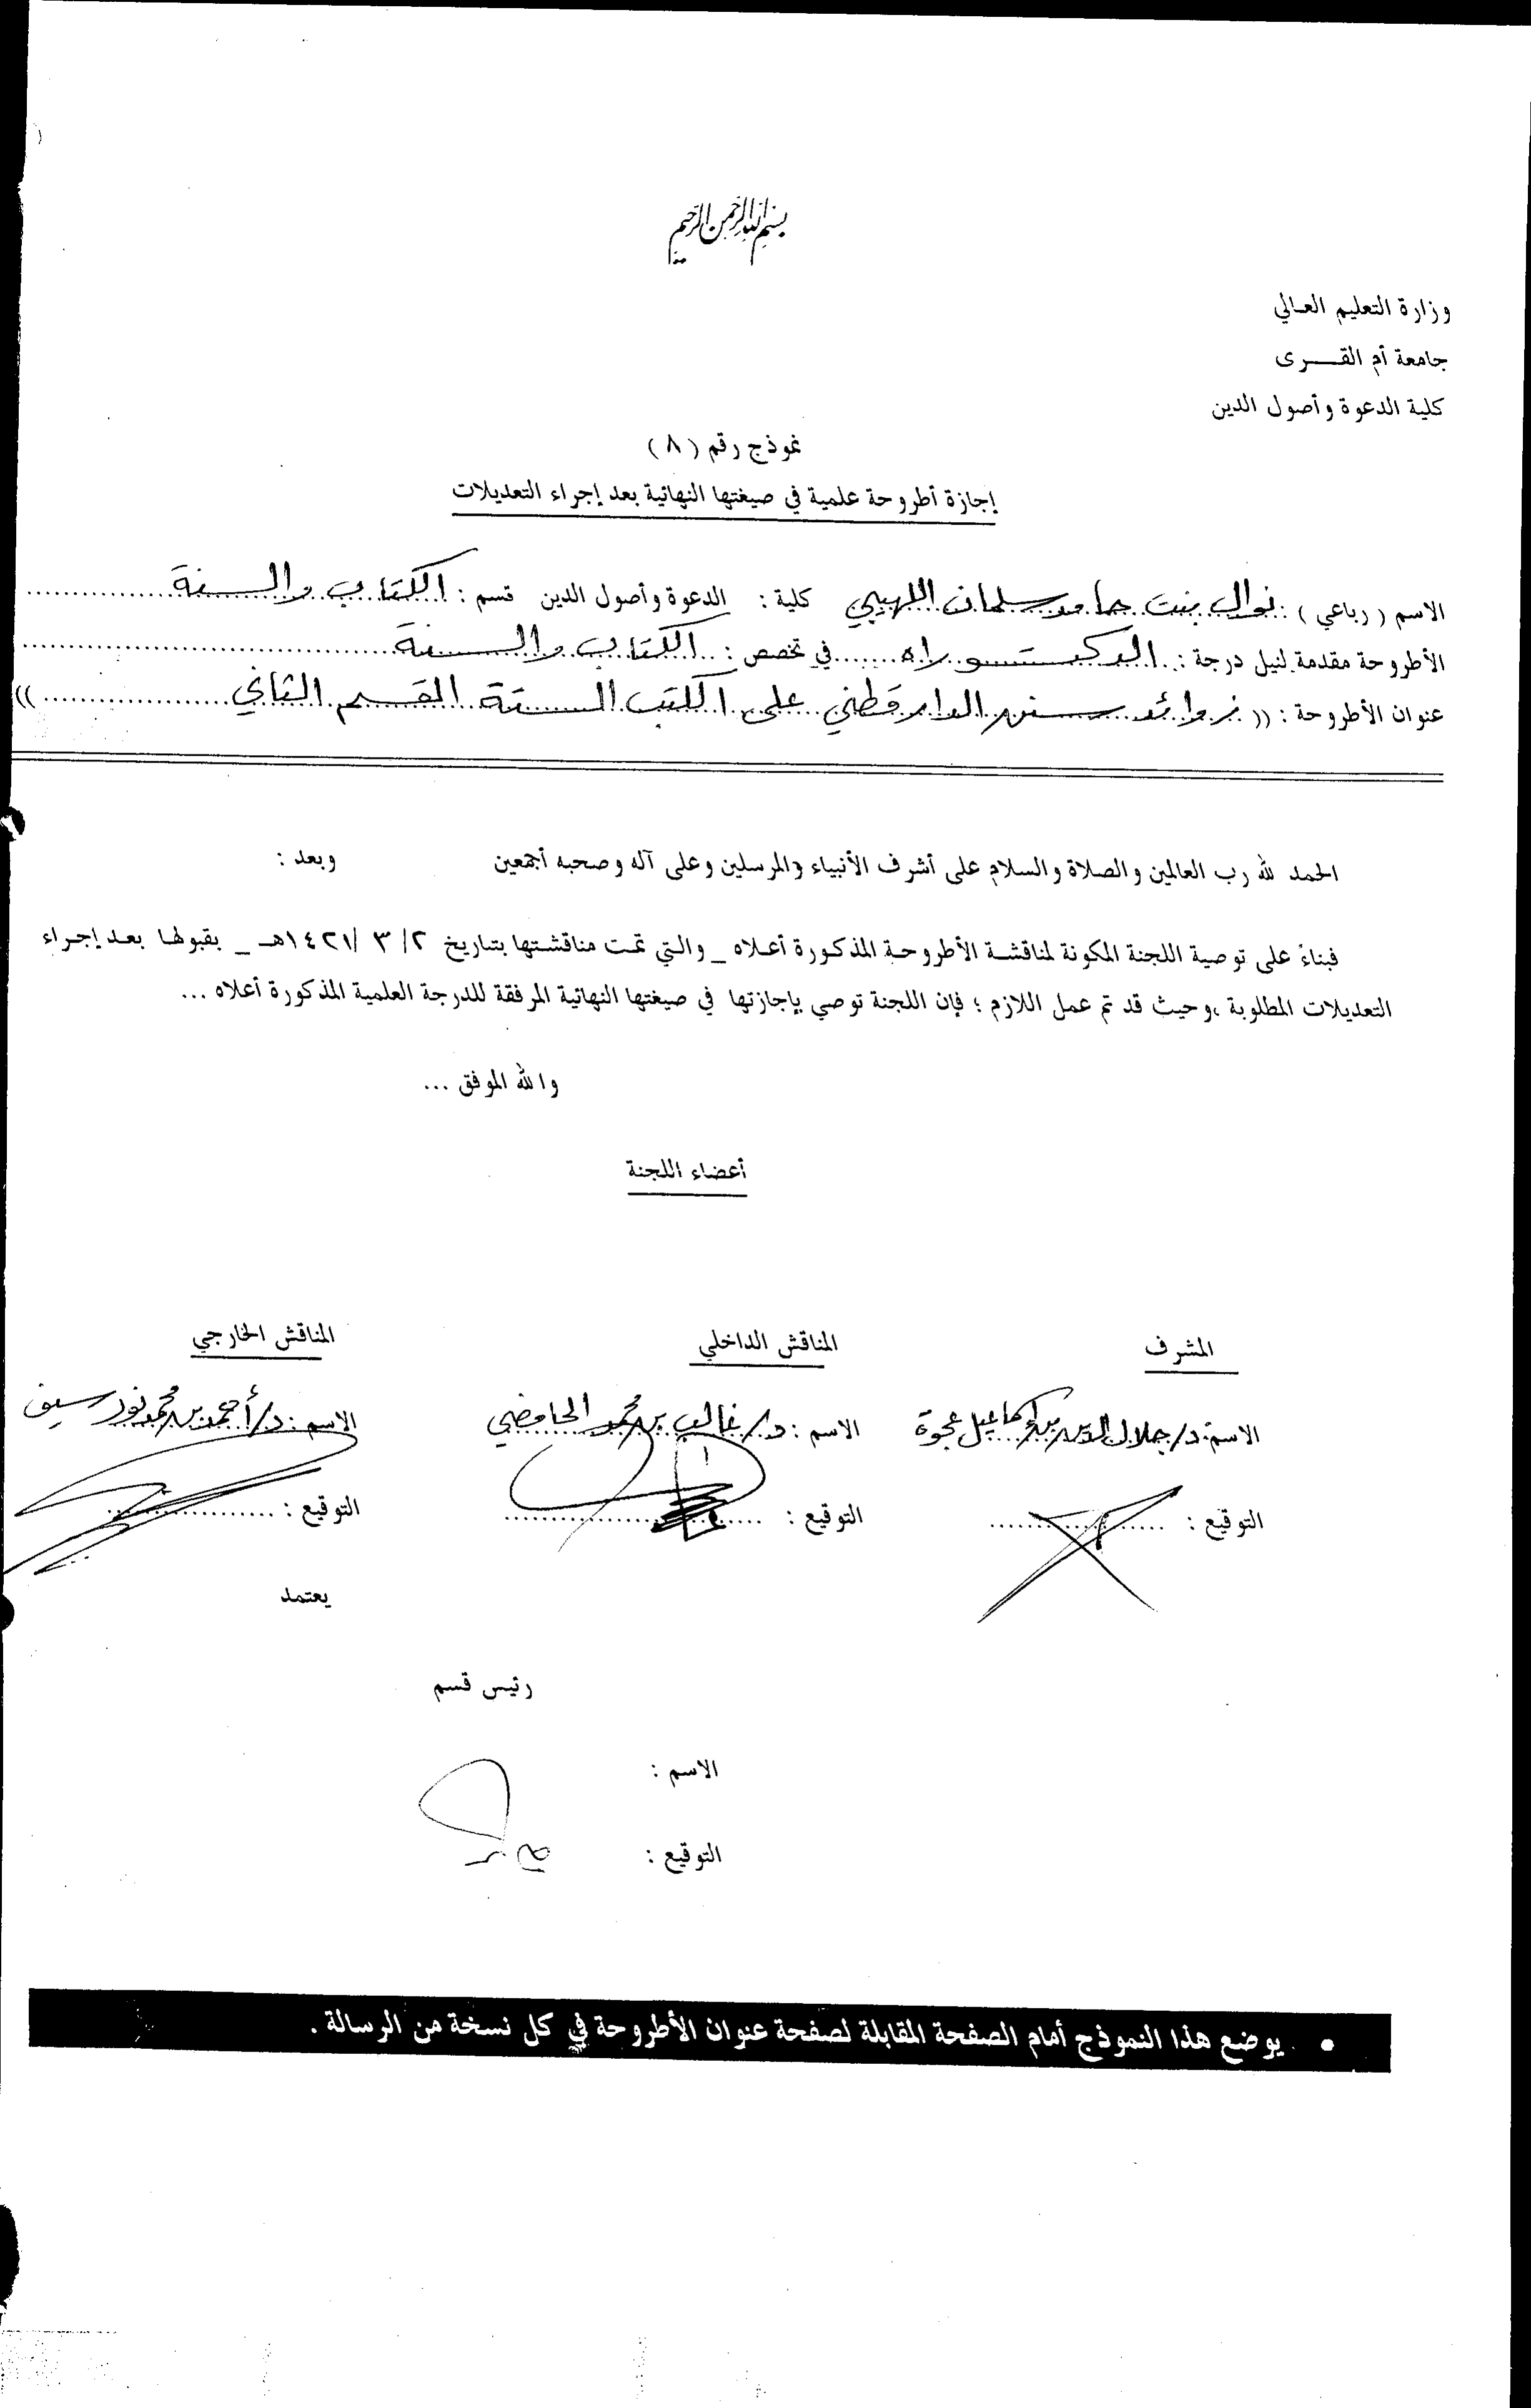 بسم الله الرحمن الرحيم
وزارة التعليم العالي
جامعة أم القــرى
كلية الدعوة وأصول الدين
نموذج رقم ( ٨ )
إجازة أطروحة علمية في صيغتها النهائية بعد إجراء التعديلات
الاسم ( رباعي ) : نوال بنت حامد سلمان اللهيبي كلية : الدعوة وأصول الدين قسم : الكتاب والسنة
الأطروحة مقدمة لنيل درجة : الدكتوراه في تخصص : الكتاب والسنة
عنوان الأطروحة : (( زوائد سنن الدارقطني على الكتب الستة القسم الثاني ))
الحمد لله رب العالمين والصلاة والسلام على أشرف الأنبياء والمرسلين وعلى آله وصحبه أجمعين وبعد :
فبناءً على توصية اللجنة المكونة لمناقشة الأطروحة المذكورة أعلاه _ والتي تمت مناقشتها بتاريخ ٢/ ٣ /١٤٢١هـ _ بقبولها بعد إجراء
التعديلات المطلوبة ،وحيث قد تم عمل اللازم ؛ فإن اللجنة توصي بإجازتها في صيغتها النهائية المرفقة للدرجة العلمية المذكورة أعلاه ...
والله الموفق ...
أعضاء اللجنة
المشرف المناقش الداخلي المناقش الخارجي
الاسم: د/ جلال الدين إسماعيل عجوة الاسم : د/ غالب بن محمد الحامضي الاسم : د/ أحمد بن محمد نور سيف
التوقيع : التوقيع : التوقيع :
يعتمد
رئيس قسم
الاسم :
التوقيع :
• يوضع هذا النموذج أمام الصفحة المقابلة لصفحة عنوان الأطروحة في كل نسخة من الرسالة .